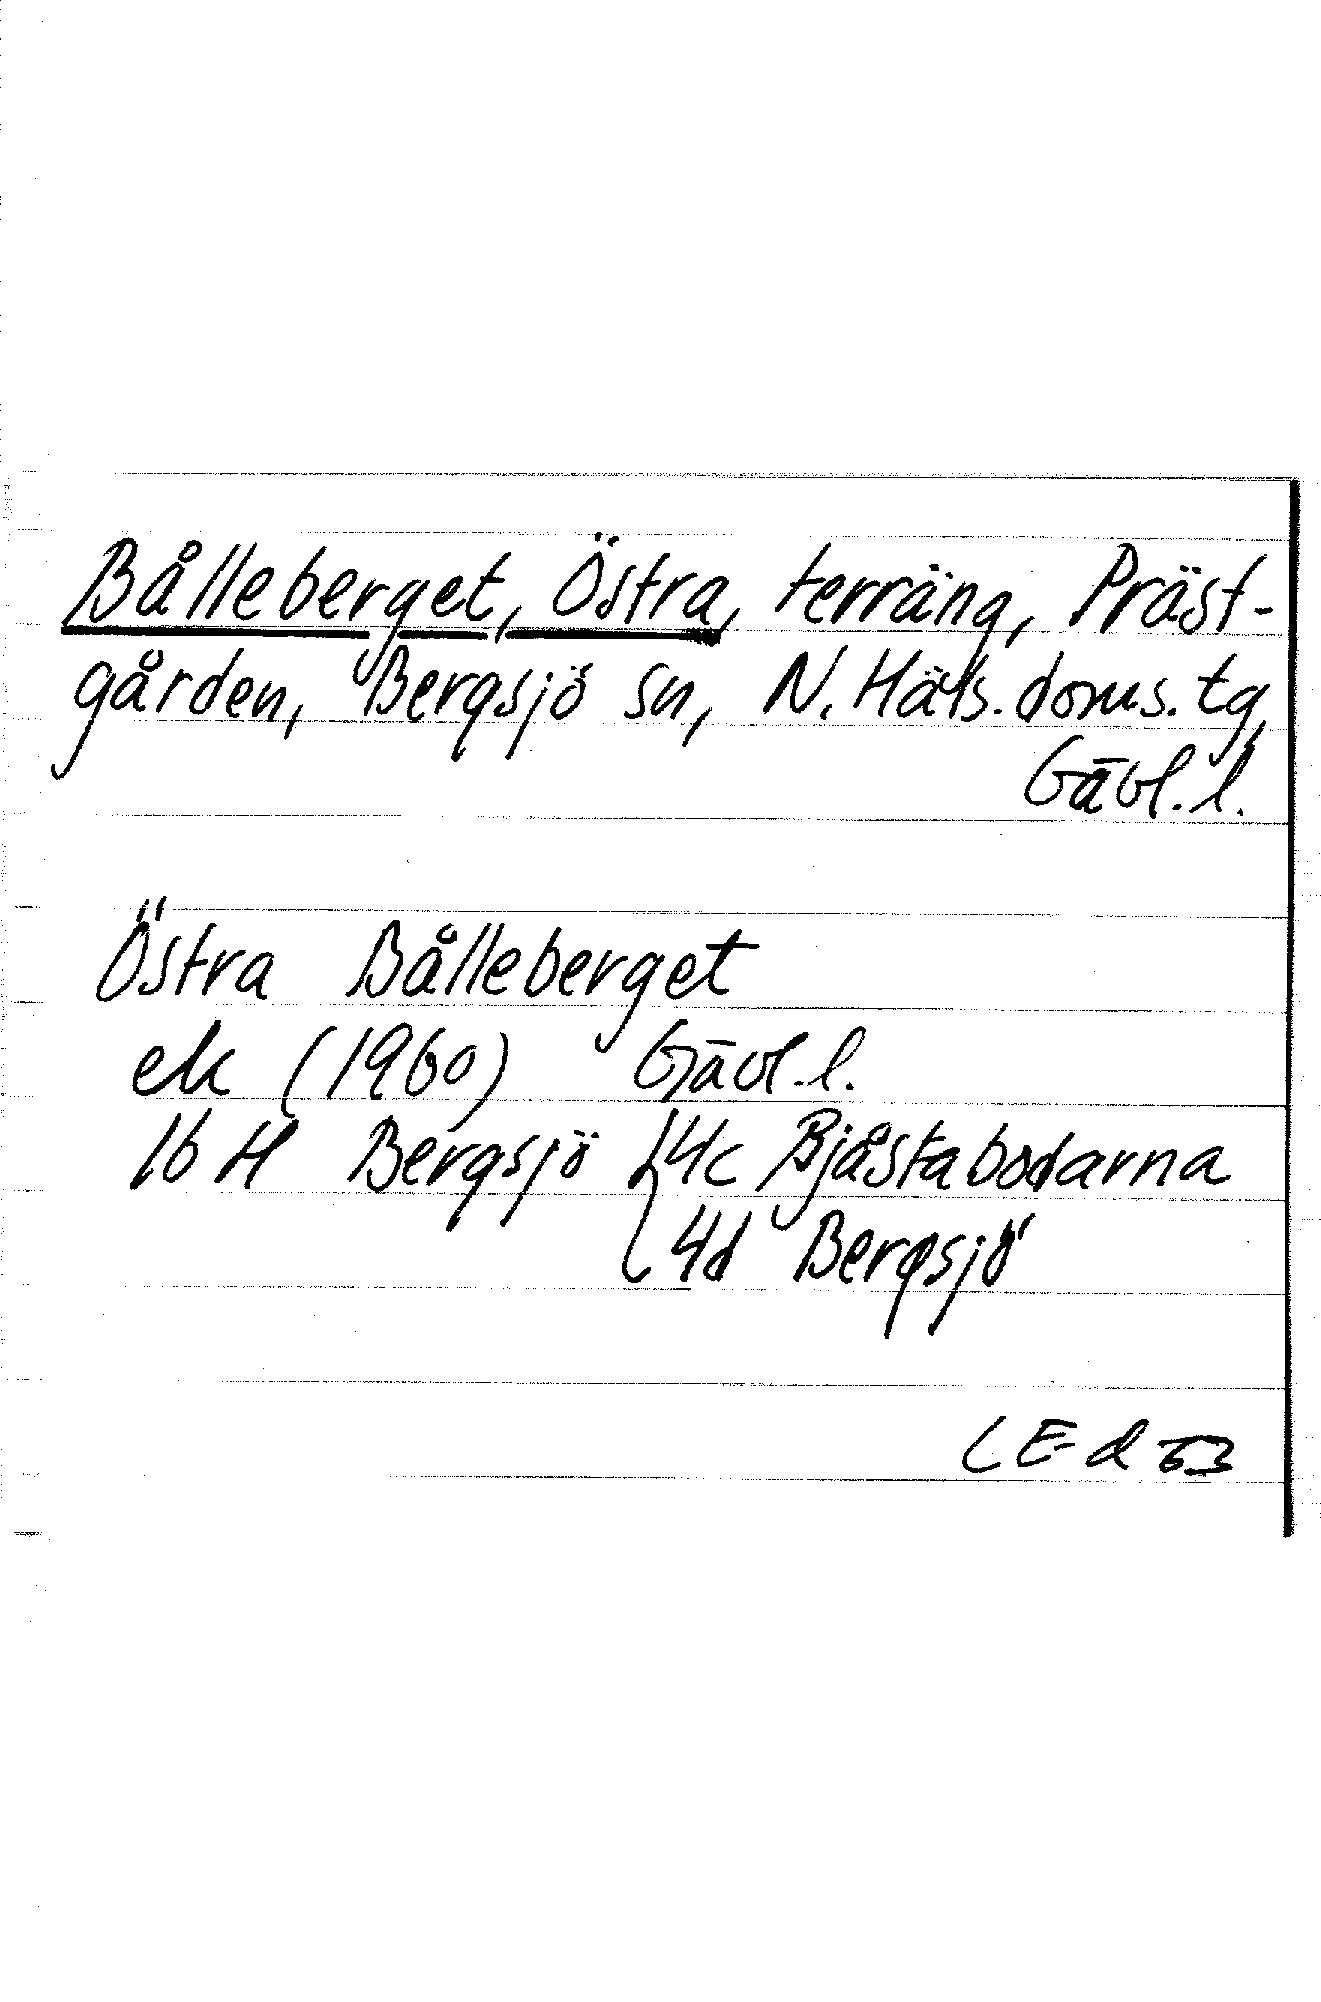 Bålleberget, Östra, terräng, Präst-
gården, Bergsjö sn, N. Häls. doms. tg
Gävl. l.
Östra Bålleberget
ek (1960) Gävl. l.
16 H Bergsjö { 4c Bjåstabodarna
4d Bergsjö
LE-d 63